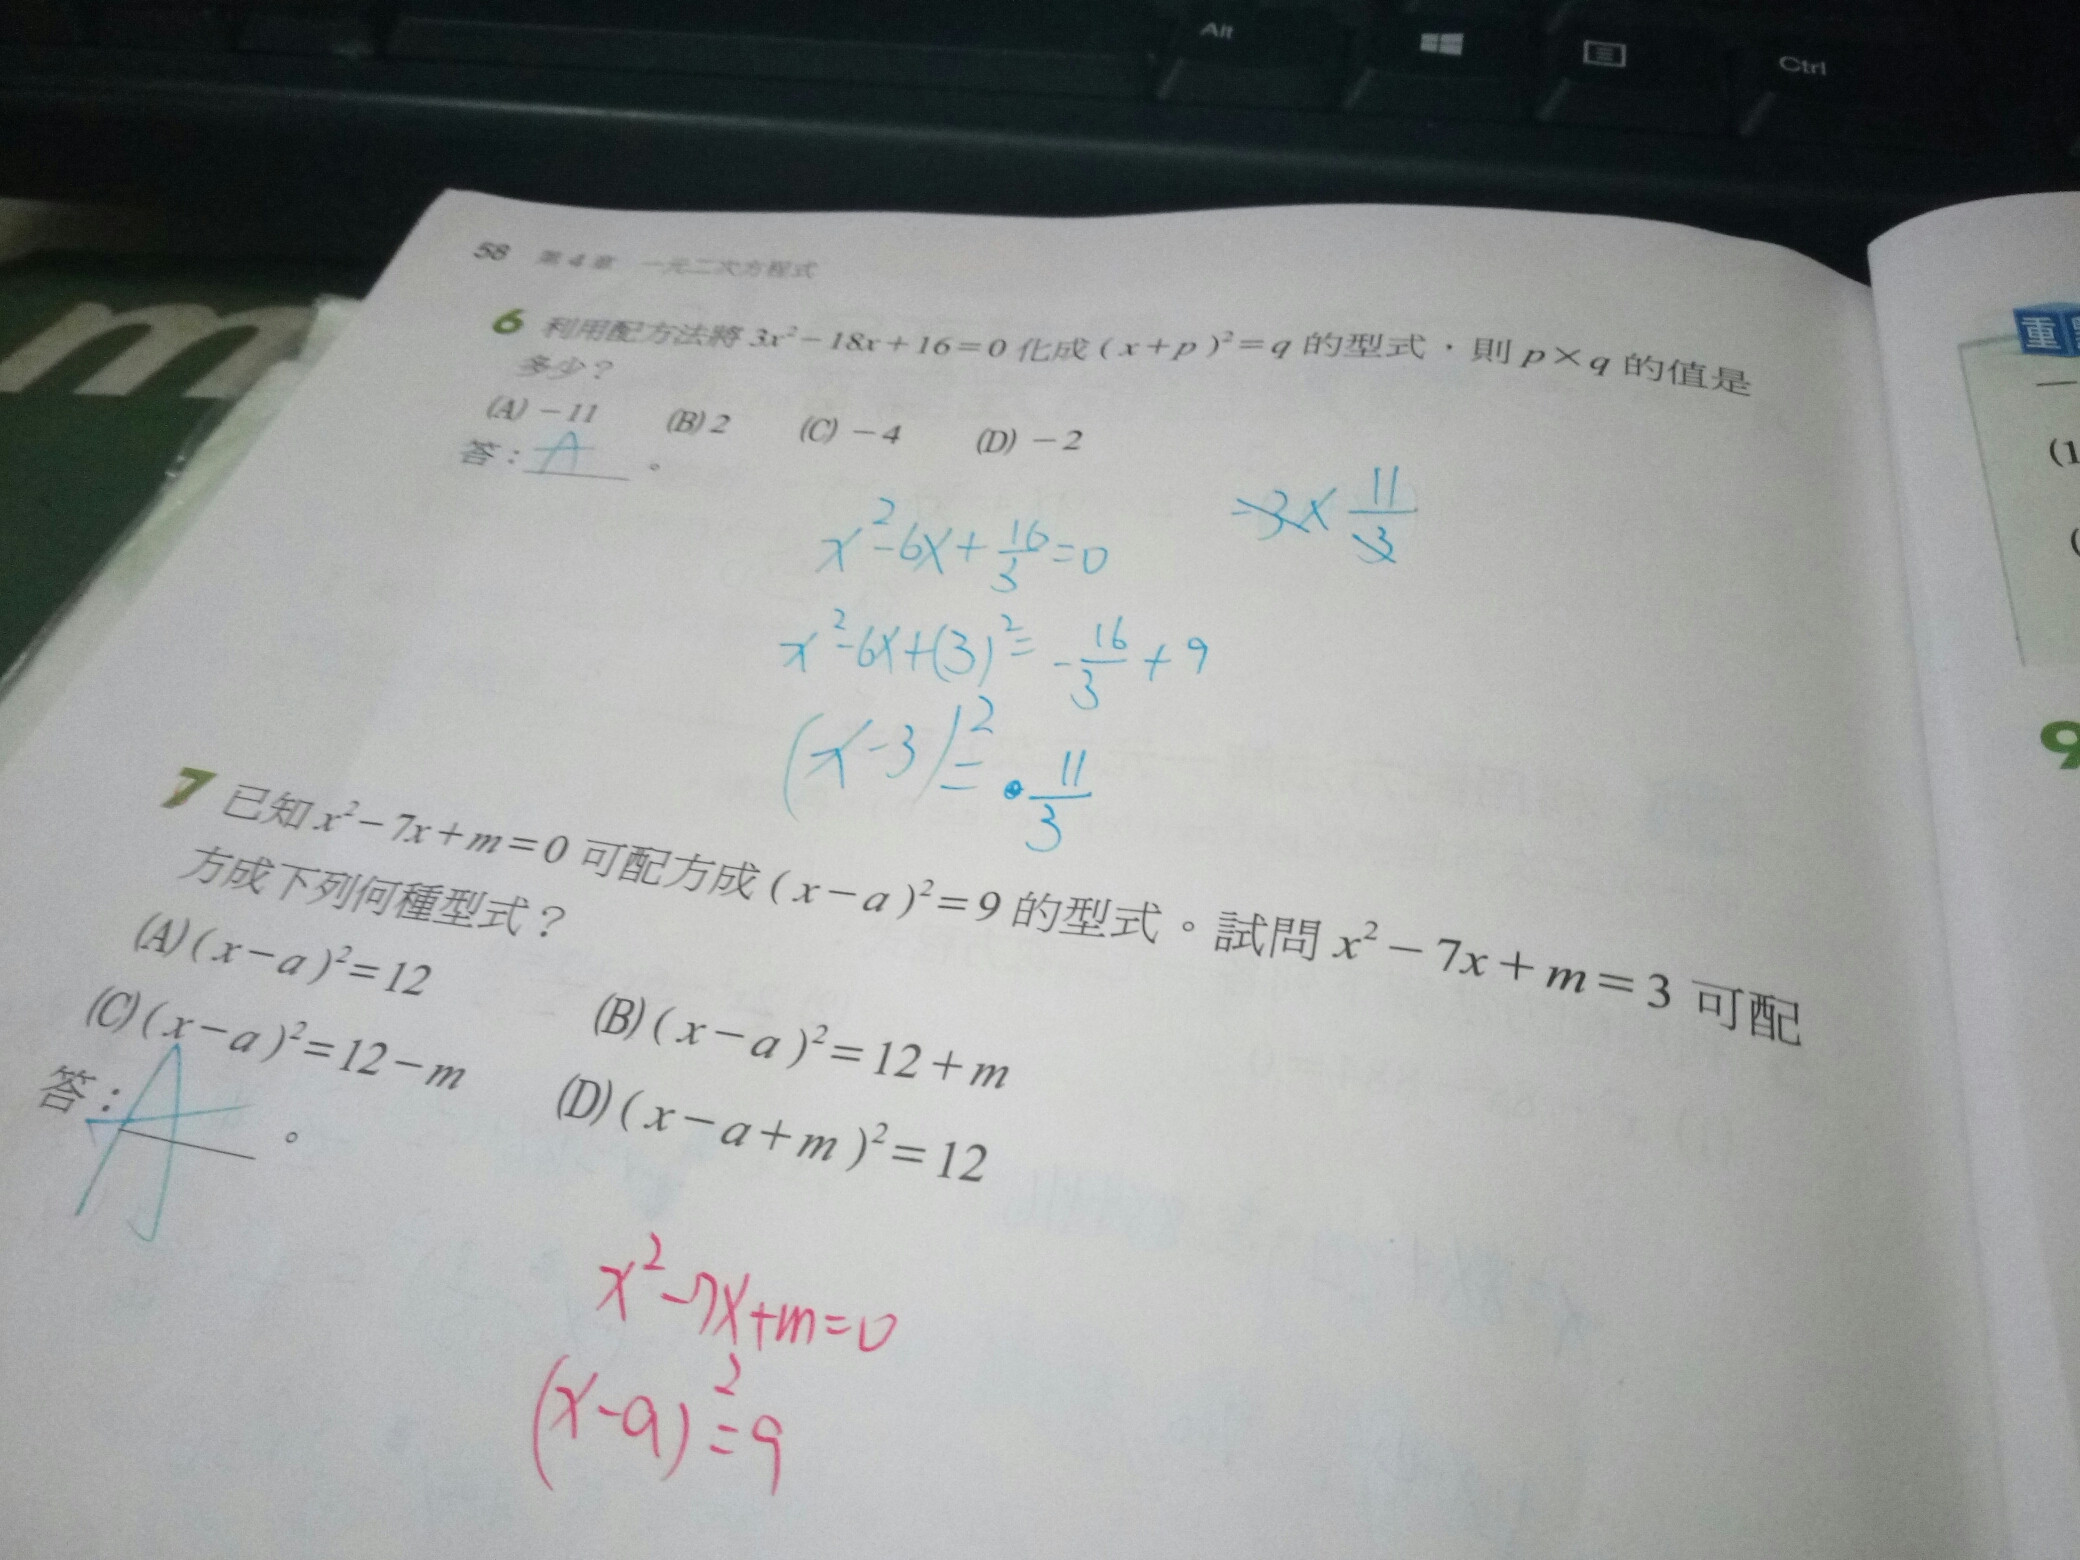 Alt
Ctrl
m
58 第4章 一元二次方程式
6 利用配方法將 3x²−18x+16=0 化成 (x+p)²=q 的型式，則 p×q 的值是
多少？
(A) −11 (B) 2 (C) −4 (D) −2
答：A。
x²-6x+16/3=0
-3×11/3
x²-6x+(3)²=-16/3+9
(x-3)²=11/3
7 已知 x²−7x+m=0 可配方成 (x−a)²=9 的型式。試問 x²−7x+m=3 可配
方成下列何種型式？
(A) (x−a)²=12
(B) (x−a)²=12+m
(C) (x−a)²=12−m
(D) (x−a+m)²=12
答：A。
x²-7x+m=0
(x-a)²=9
重
一
(1
(
9